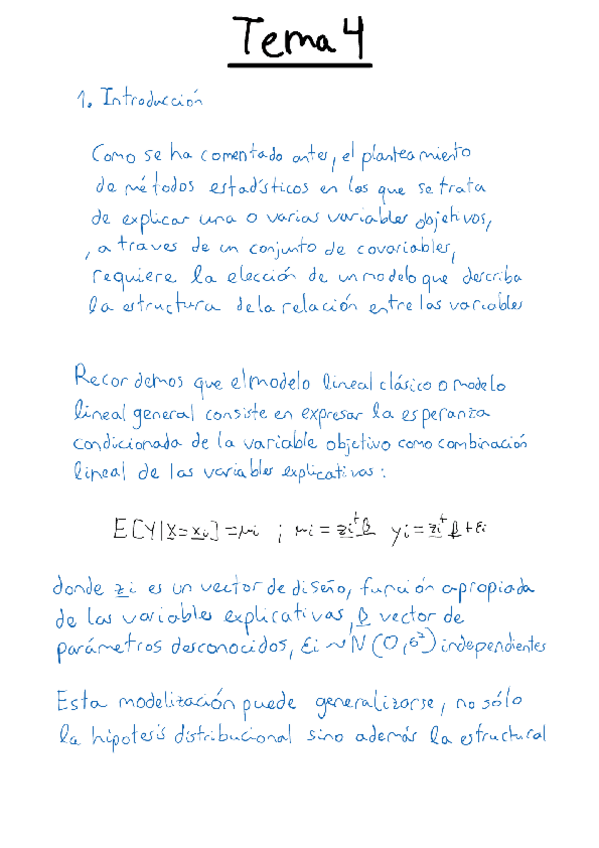 Tema 4
1. Introducción
Como se ha comentado antes, el planteamiento
de métodos estadísticos en los que se trata
de explicar una o varias variables objetivos,
, a traves de un conjunto de covariables,
requiere la elección de un modelo que describa
la estructura de la relación entre las variables
Recordemos que el modelo lineal clásico o modelo
lineal general consiste en expresar la esperanza
condicionada de la variable objetivo como combinación
lineal de las variables explicativas:
E[Y|X=xi] = μi ; μi = zi^t β yi = zi^t β + εi
donde zi es un vector de diseño, función apropiada
de las variables explicativas, β vector de
parámetros desconocidos, εi ~ N(0, σ²) independientes
Esta modelización puede generalizarse, no sólo
la hipotesis distribucional sino además la estructural